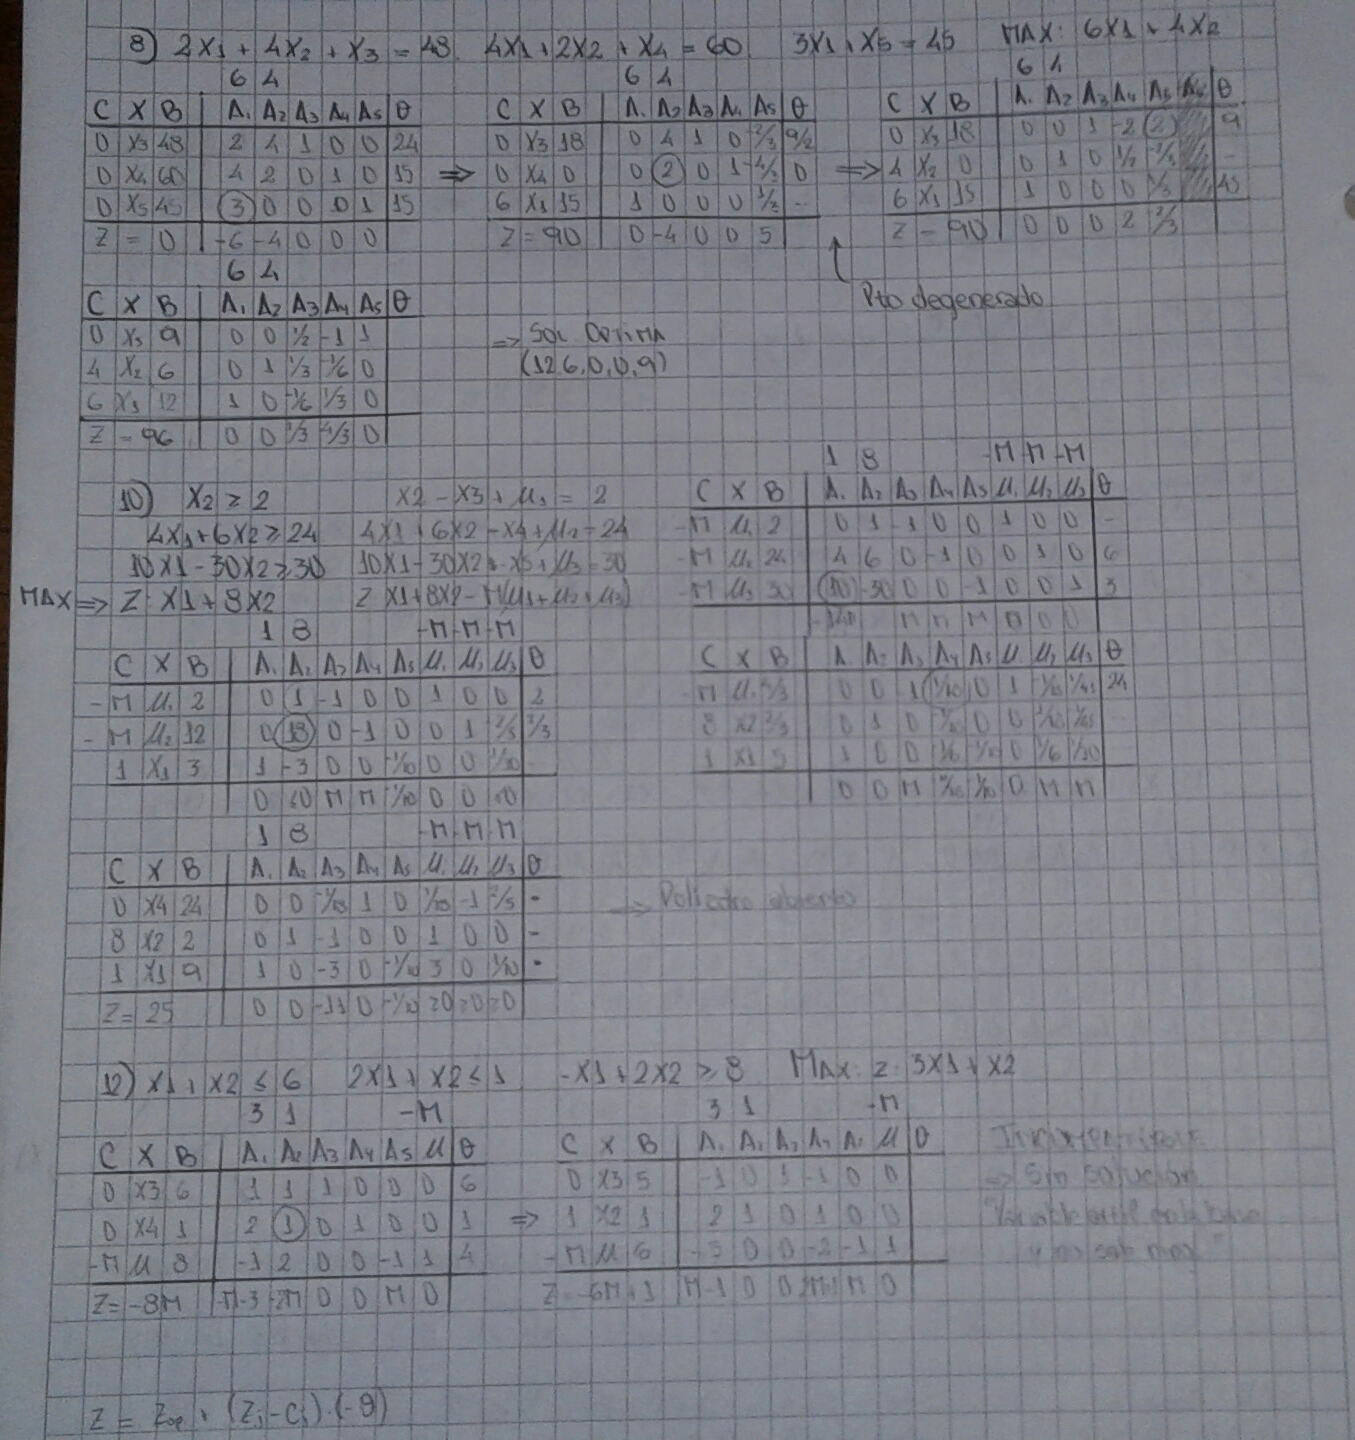 8) 2X1 + 4X2 + X3 = 48 4X1 + 2X2 + X4 = 60 3X1 + X5 = 45 MAX: 6X1 + 4X2
6 4
C X B A1 A2 A3 A4 A5 θ
0 X3 48 2 4 1 0 0 24
0 X4 60 4 2 0 1 0 15
0 X5 45 3 0 0 0 1 15
Z = 0 -6 -4 0 0 0
6 4
C X B A1 A2 A3 A4 A5 θ
0 X3 18 0 4 1 0 9/2
⇒ 0 X4 0 0 2 0 1 -4/3 0
6 X1 15 1 0 0 0 --
Z = 90 0 -4 0 0 5
6 4
C X B A1 A2 A3 A4 A5 θ
0 X3 18 0 0 1 -2 2 9
⇒ 4 X2 0 0 1 0 1/2 -
6 X1 15 1 0 0 0 1/3 45
Z = 90 0 0 0 2 2/3
Pto degenerado
6 4
C X B A1 A2 A3 A4 A5 θ
0 X5 9 0 0 1/2 -1 1
4 X2 6 0 1 1/3 -1/6 0
6 X1 12 1 0 -1/6 1/3 0
Z = 96 0 0 1/3 4/3 0
⇒ SOL OPTIMA
(12,6,0,0,9)
10) X2 ≥ 2 X2 - X3 + μ1 = 2
4X1 + 6X2 ≥ 24 4X1 + 6X2 - X4 + μ2 = 24
10X1 - 30X2 ≥ 30 10X1 - 30X2 - X5 + μ3 = 30
MAX ⇒ Z: X1 + 8X2 Z X1 + 8X2 - M(μ1 + μ2 + μ3)
1 8 -M -M -M
C X B A1 A2 A3 A4 A5 μ1 μ2 μ3 θ
-M μ1 2 0 1 -1 0 0 1 0 0 -
-M μ2 24 4 6 0 -1 0 0 1 0 6
-M μ3 30 10 -30 0 0 -1 0 0 1 3
M M M 0 0 0
1 8 -M -M -M
C X B A1 A2 A3 A4 A5 μ1 μ2 μ3 θ
-M μ1 2 0 1 -1 0 0 1 0 0 2
-M μ2 12 0 18 0 -1 0 0 1 2/3
1 X1 3 1 -3 0 0 -1/10 0 0 1/10
0 <0 M M 1/10 0 0 <0
C X B A1 A2 A3 A4 A5 μ1 μ2 μ3 θ
8 X2 2/3 0 1 0
1 X1 5 1 0 0
0 0 M 0 M M
1 8 -M -M -M
C X B A1 A2 A3 A4 A5 μ1 μ2 μ3 θ
0 X4 24 0 0 1 0 -1 -
8 X2 2 0 1 -1 0 0 1 0 0 -
1 X1 9 1 0 -3 0 -1/10 3 0 1/10 -
Z = 25 0 0 -11 0 -1/10 ≥0 ≥0 ≥0
⇒ Poliedro abierto
12) X1 + X2 ≤ 6 2X1 + X2 ≤ 1 -X1 + 2X2 ≥ 8 Max: Z: 3X1 + X2
3 1 -M
C X B A1 A2 A3 A4 A5 μ θ
0 X3 6 1 1 1 0 0 0 6
0 X4 1 2 1 0 1 0 0 1
-M μ 8 -1 2 0 0 -1 1 4
Z = -8M M-3 -2M 0 0 M 0
3 1 -M
C X B A1 A2 A3 A4 A5 μ θ
0 X3 5 -1 0 1 -1 0 0
⇒ 1 X2 1 2 1 0 1 0 0
-M μ 6 -5 0 0 -2 -1 1
Z = -6M + 1 0 0 M 0
⇒ Sin solucion
Z = Zop + (Zj - Cj) · (-θ)